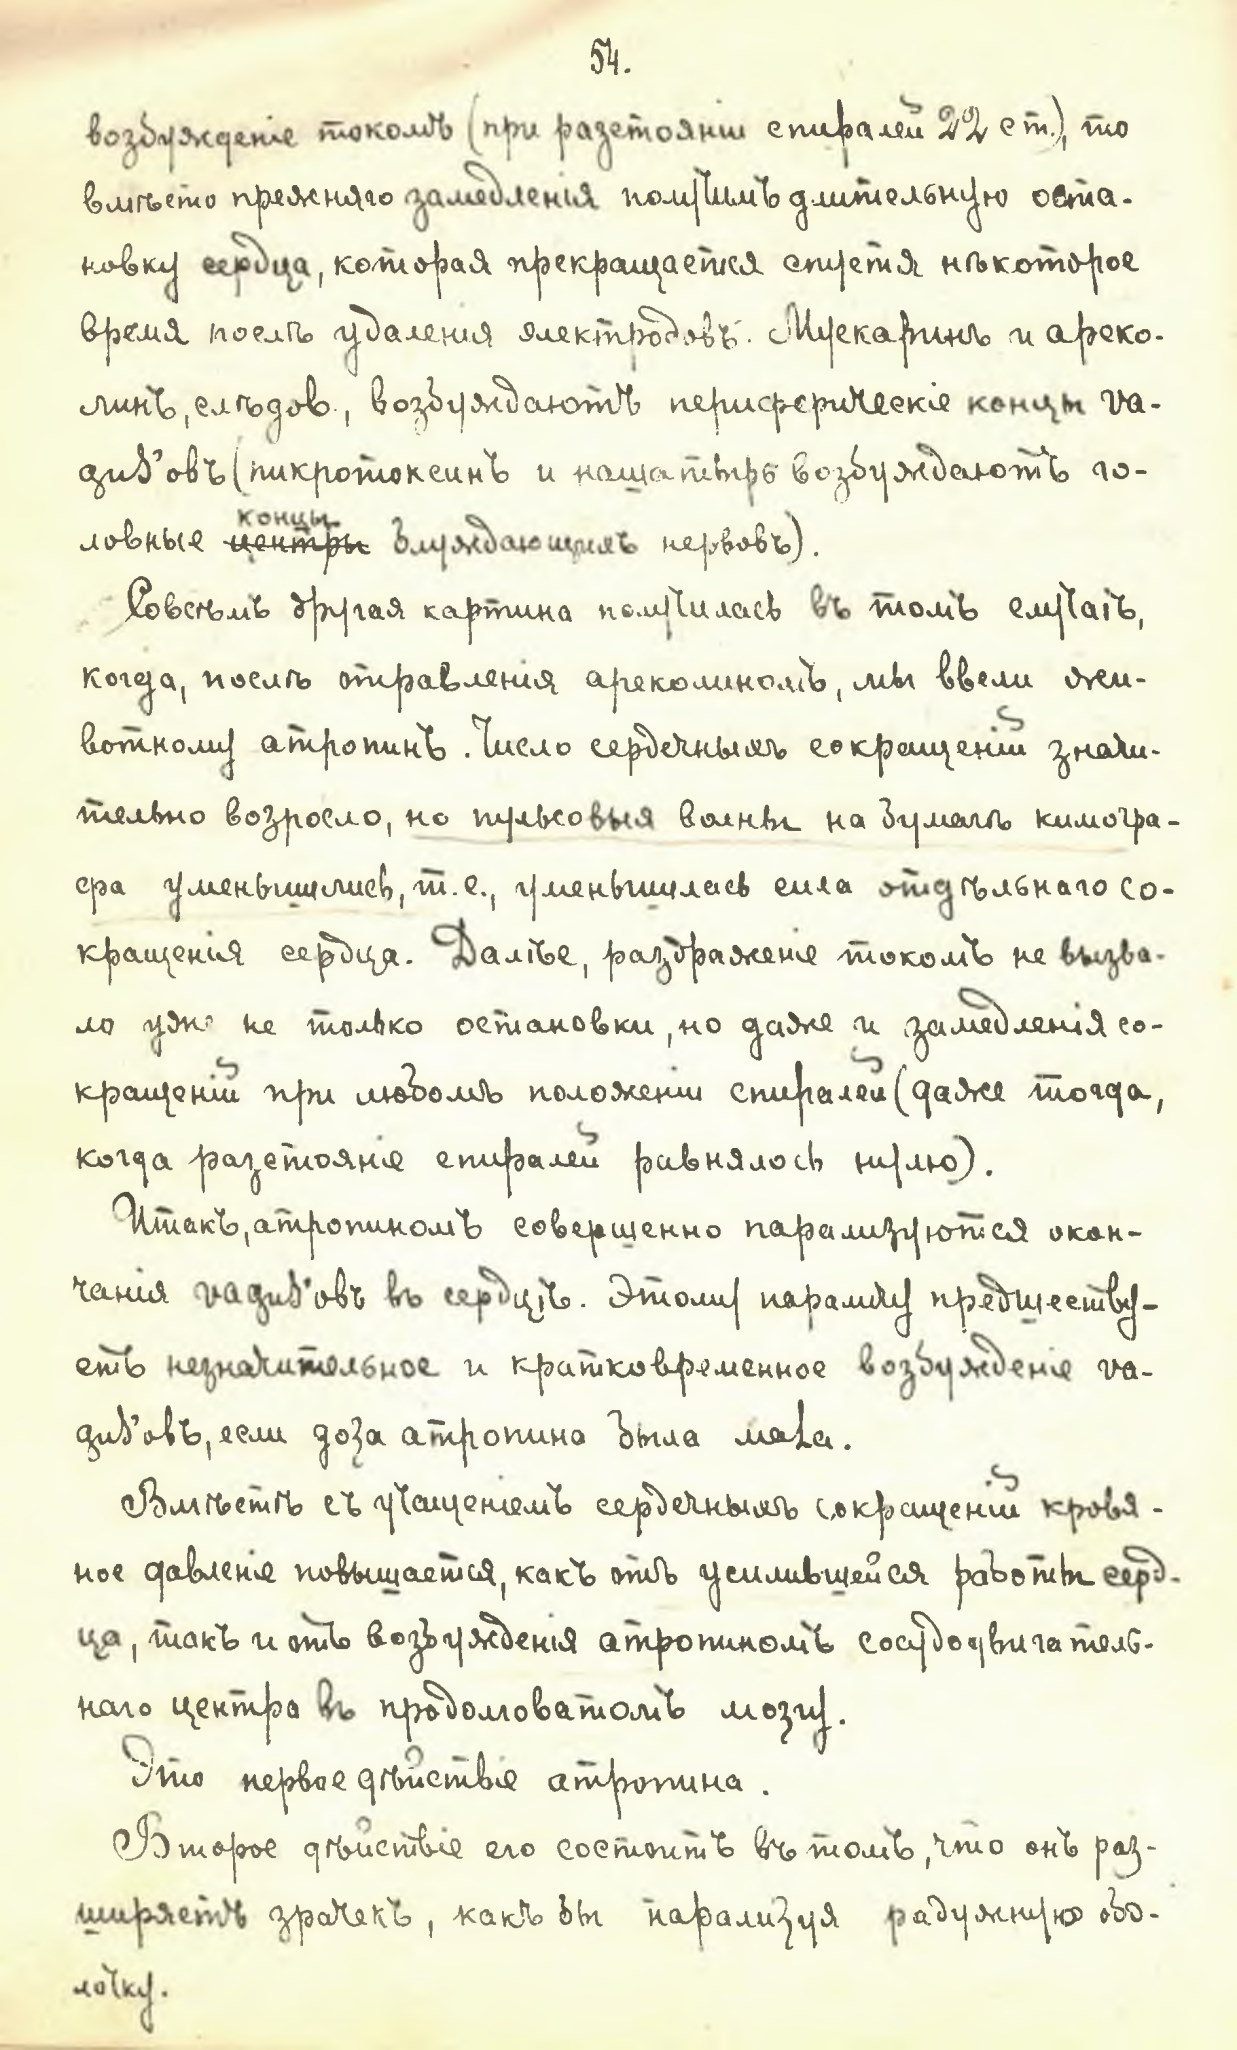 54.
возбужденіе токомъ (при разстояніи спиралей 22 cm.), то
вмѣсто прежняго замедленія получимъ длительную оста-
новку сердца, которая прекращается спустя нѣкоторое
время послѣ удаленія электродовъ. Мускаринъ и ареко-
линъ, слѣдов., возбуждаютъ периферическіе концы va-
gus'овъ (пикротоксинъ и нашатырь возбуждаютъ го-
концы
ловные центры блуждающихъ нервовъ).
Совсѣмъ другая картина получилась въ томъ случаѣ,
когда, послѣ отравленія ареколиномъ, мы ввели жи-
вотному атропинъ. Число сердечныхъ сокращеній значи-
тельно возросло, но пульсовыя волны на бумагѣ кимогра-
фа уменьшились, т.е., уменьшилась сила отдѣльнаго со-
кращенія сердца. Далѣе, раздраженіе токомъ не вызва-
ло уже не только остановки, но даже и замедленія со-
кращеній при любомъ положеніи спиралей (даже тогда,
когда разстояніе спиралей равнялось нулю).
Итакъ, атропиномъ совершенно парализуются окон-
чанія vagus'овъ въ сердцѣ. Этому параличу предшеству-
етъ незначительное и кратковременное возбужденіе va-
gus'овъ, если доза атропина была мала.
Вмѣстѣ съ учащеніемъ сердечныхъ сокращеній кровя-
ное давленіе повышается, какъ отъ усилившейся работы серд-
ца, такъ и отъ возбужденія атропиномъ сосудодвигатель-
наго центра въ продолговатомъ мозгу.
Это первое дѣйствіе атропина.
Второе дѣйствіе его состоитъ въ томъ, что онъ раз-
ширяетъ зрачекъ, какъ бы парализуя радужную обо-
лочку.